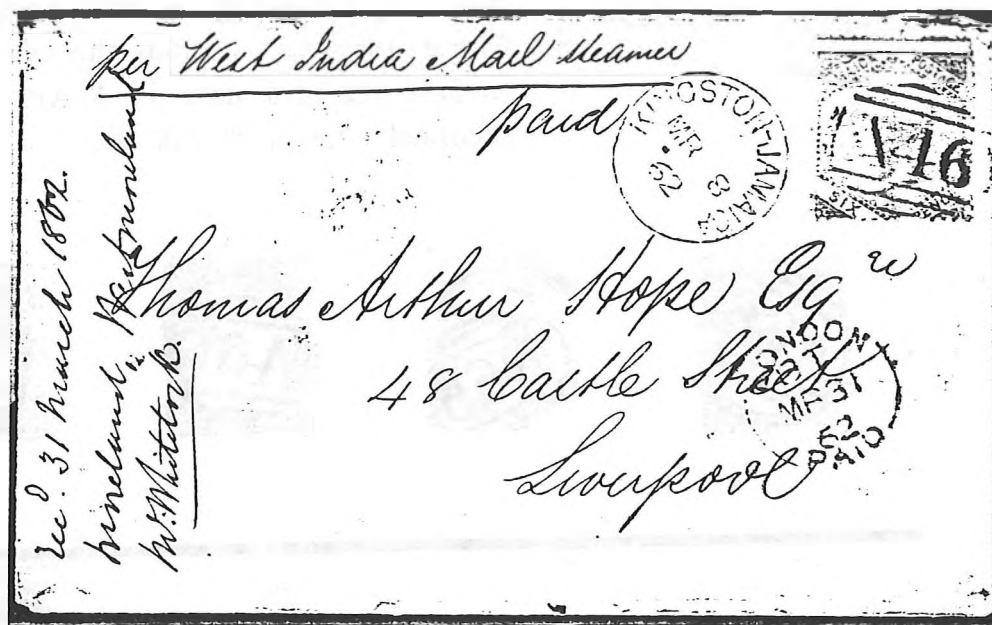 per West India Mail Steamer
paid
KINGSTON-JAMAICA
MR
8
62
Thomas Arthur Hope Esqre
48 Castle Street
Liverpool
LONDON
MR 31
62
PAID
recd. 31 March 1862.
Westmoreland
W. Whitelock.